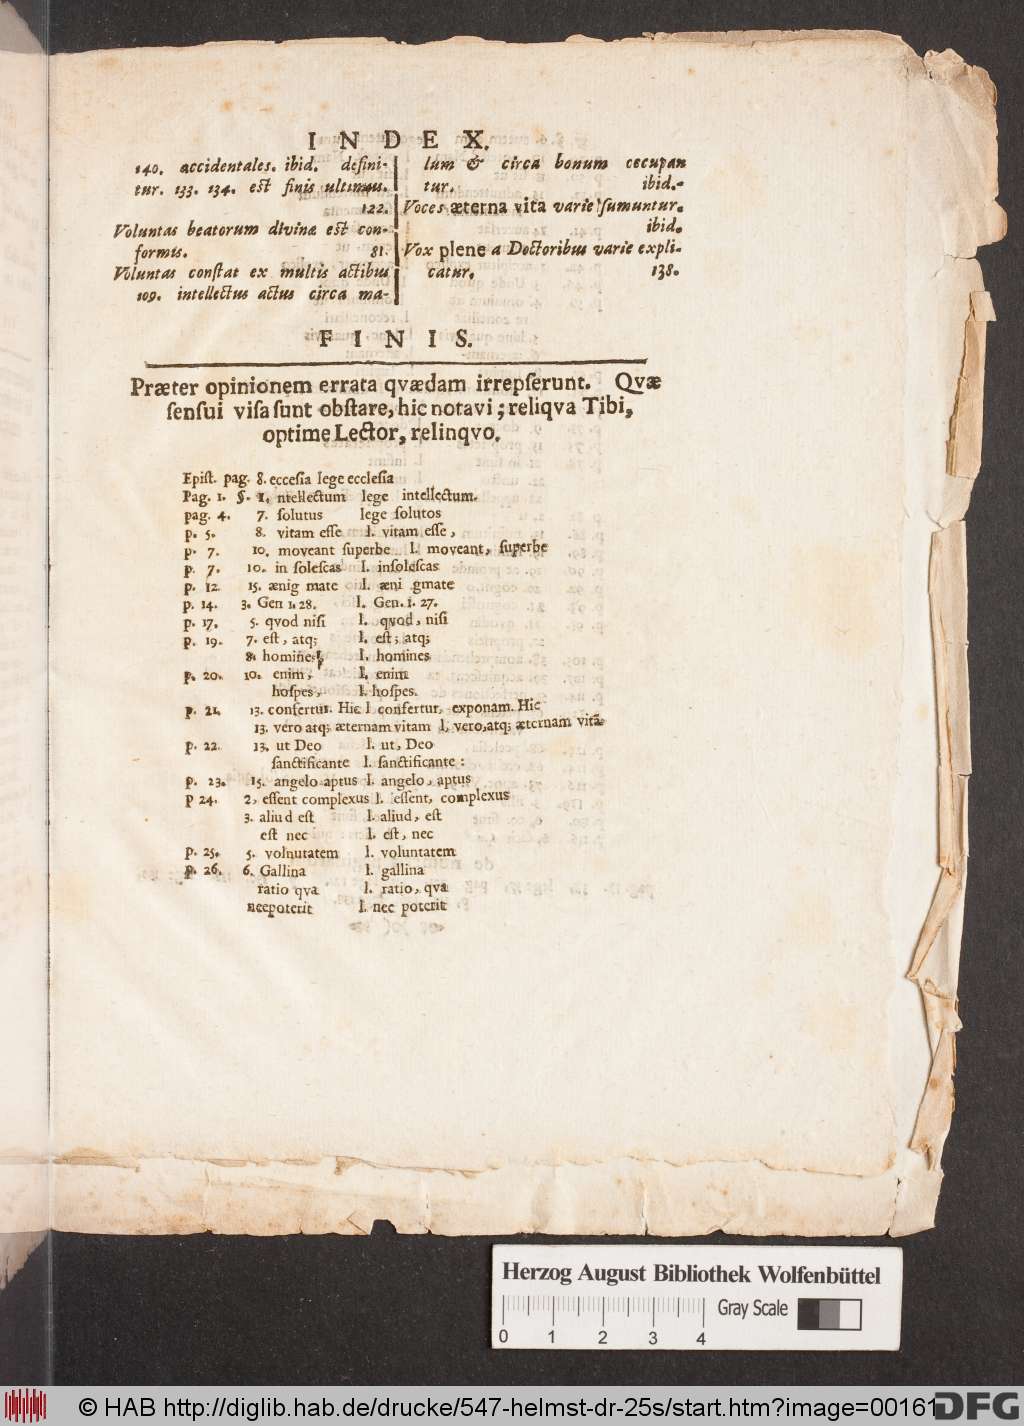 INDEX.
140. accidentales. ibid. defini-
tur. 133. 134. est finis ultimus.
122.
Voluntas beatorum divinæ est con-
formis. 81.
Voluntas constat ex multis actibus
109. intellectus actus circa ma-
lum & circa bonum occupan
tur. ibid.-
Voces æterna vita varie sumuntur.
ibid.
Vox plene a Doctoribus varie expli-
catur. 138.
FINIS.
Præter opinionem errata qvædam irrepserunt. Qvæ
sensui visa sunt obstare, hic notavi; reliqva Tibi,
optime Lector, relinqvo.
Epist. pag. 8. eccesia lege ecclesia
Pag. 1. §. 1. ntellectum lege intellectum.
pag. 4. 7. solutus lege solutos
p. 5. 8. vitam esse l. vitam esse,
p. 7. 10. moveant superbe l. moveant, superbe
p. 7. 10. in solescas l. insolescas
p. 12. 15. ænig mate l. æni gmate
p. 14. 3. Gen 1. 28. l. Gen. 1. 27.
p. 17. 5. qvod nisi l. qvod, nisi
p. 19. 7. est, atq; l. est; atq;
8. homines l. homines
p. 20. 10. enim, l. enim
hospes, l. hospes.
p. 21. 13. confertur. Hic l confertur, exponam. Hic
13. vero atq; æternam vitam l. vero, atq; æternam vitã
p. 22. 13. ut Deo l. ut, Deo
sanctificante l. sanctificante:
p. 23. 15. angelo aptus l. angelo, aptus
p 24. 2, essent complexus l. essent, complexus
3. aliud est l. aliud, est
est nec l. est, nec
p. 25. 5. volnutatem l. voluntatem
p. 26. 6. Gallina l. gallina
ratio qva l. ratio, qva
necpoterit l. nec poterit
Herzog August Bibliothek Wolfenbüttel
Gray Scale
0 1 2 3 4
© HAB http://diglib.hab.de/drucke/547-helmst-dr-25s/start.htm?image=00161
DFG